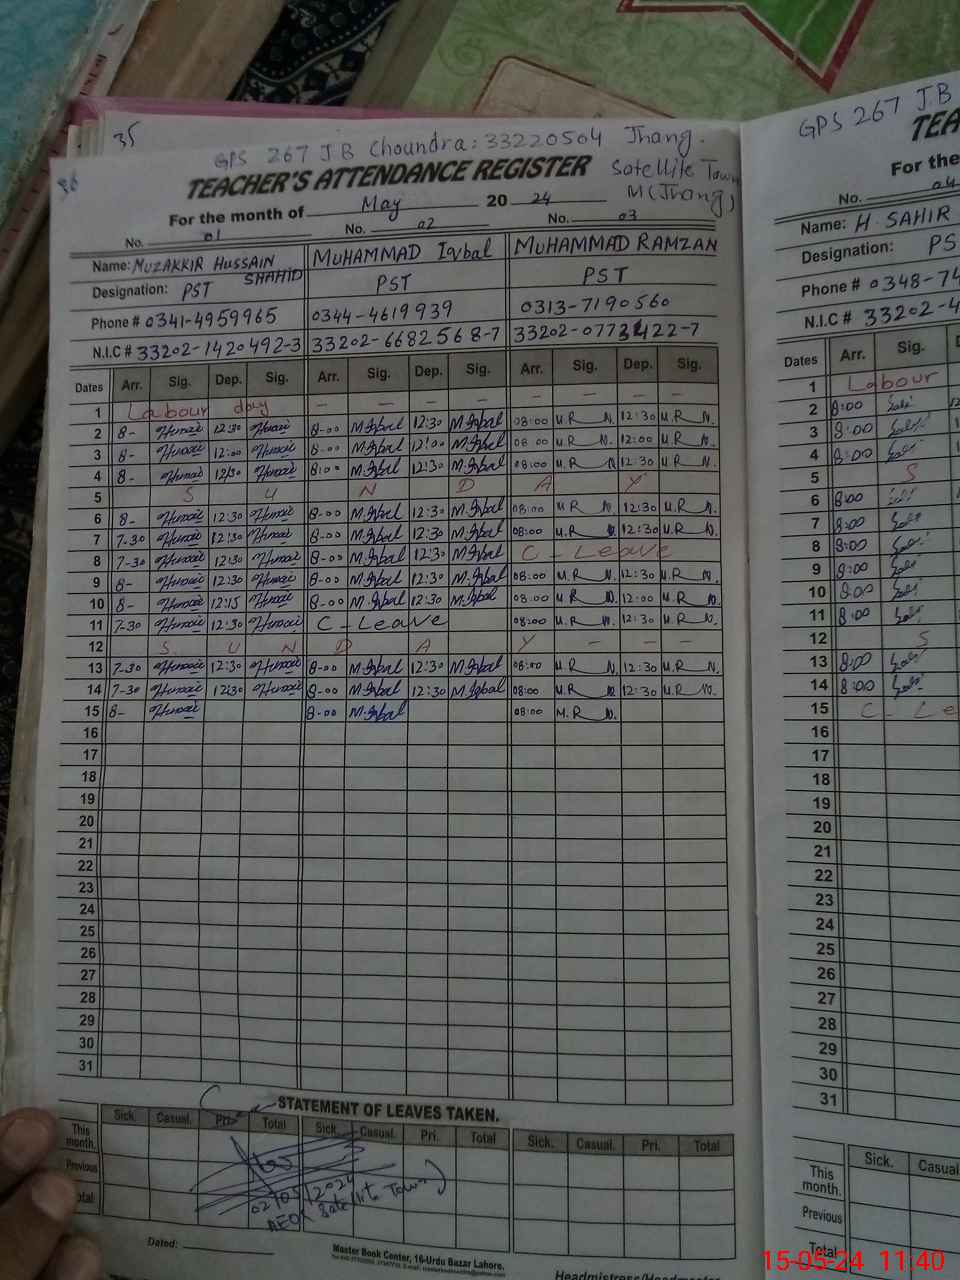 35
36
GPS 267 J B Choundra: 33220504 Jhang.
TEACHER'S ATTENDANCE REGISTER Satellite Town
For the month of May 20 24 M(Jhang)
No. 01 No. 02 No. 03
Name: MUZAKKIR HUSSAIN SHAHID MUHAMMAD Iqbal MUHAMMAD RAMZAN
Designation: PST PST PST
Phone # 0341-4959965 0344-4619939 0313-7190560
N.I.C # 33202-1420492-3 33202-6682568-7 33202-0773422-7
Dates Arr. Sig. Dep. Sig. Arr. Sig. Dep. Sig. Arr. Sig. Dep. Sig.
1 Labour day - - - - - - - -
2 8- 12:30 8-00 M.Iqbal 12:30 M.Iqbal 08:00 M.R N. 12:30 M.R N.
3 8- 12:00 8-00 M.Iqbal 12:00 M.Iqbal 08:00 M.R N. 12:00 M.R N.
4 8- 12:30 8:00 M.Iqbal 12:30 M.Iqbal 08:00 M.R N 12:30 M.R N.
5 S U N D A Y
6 8- 12:30 8-00 M.Iqbal 12:30 M.Iqbal 08:00 M.R N. 12:30 M.R N.
7 7-30 12:30 8-00 M.Iqbal 12:30 M.Iqbal 08:00 M.R N. 12:30 M.R N.
8 7-30 12:30 8-00 M.Iqbal 12:30 M.Iqbal C - Leave
9 8- 12:30 8-00 M.Iqbal 12:30 M.Iqbal 08:00 M.R N. 12:30 M.R N.
10 8- 12:15 8-00 M.Iqbal 12:30 M.Iqbal 08:00 M.R N. 12:00 M.R N.
11 7-30 12:30 C - Leave 08:00 M.R N. 12:30 M.R N.
12 S U N D A Y - - -
13 7-30 12:30 8-00 M.Iqbal 12:30 M.Iqbal 08:00 M.R N. 12:30 M.R N.
14 7-30 12:30 8-00 M.Iqbal 12:30 M.Iqbal 08:00 M.R N. 12:30 M.R N.
15 8- 8-00 M.Iqbal 08:00 M.R N.
16
17
18
19
20
21
22
23
24
25
26
27
28
29
30
31
STATEMENT OF LEAVES TAKEN.
Sick. Casual. Pri. Total Sick. Casual. Pri. Total Sick. Casual. Pri. Total
This month.
Previous
Total
02/05/2024
AEO( Satellite Town)
Dated:
Master Book Center, 16-Urdu Bazar Lahore.
Headmistress/Headmaster
GPS 267 J.B
TEA
For the
No. 04
Name: H. SAHIR
Designation: PS
Phone # 0348-74
N.I.C # 33202-4
Dates Arr. Sig.
1 Labour
2 8:00
3 8:00
4 8:00
5 S
6 8:00
7 8:00
8 8:00
9 8:00
10 8:00
11 8:00
12 S
13 8:00
14 8:00
15 C - Le
16
17
18
19
20
21
22
23
24
25
26
27
28
29
30
31
Sick. Casual
This month.
Previous
Total
15-05-24 11:40